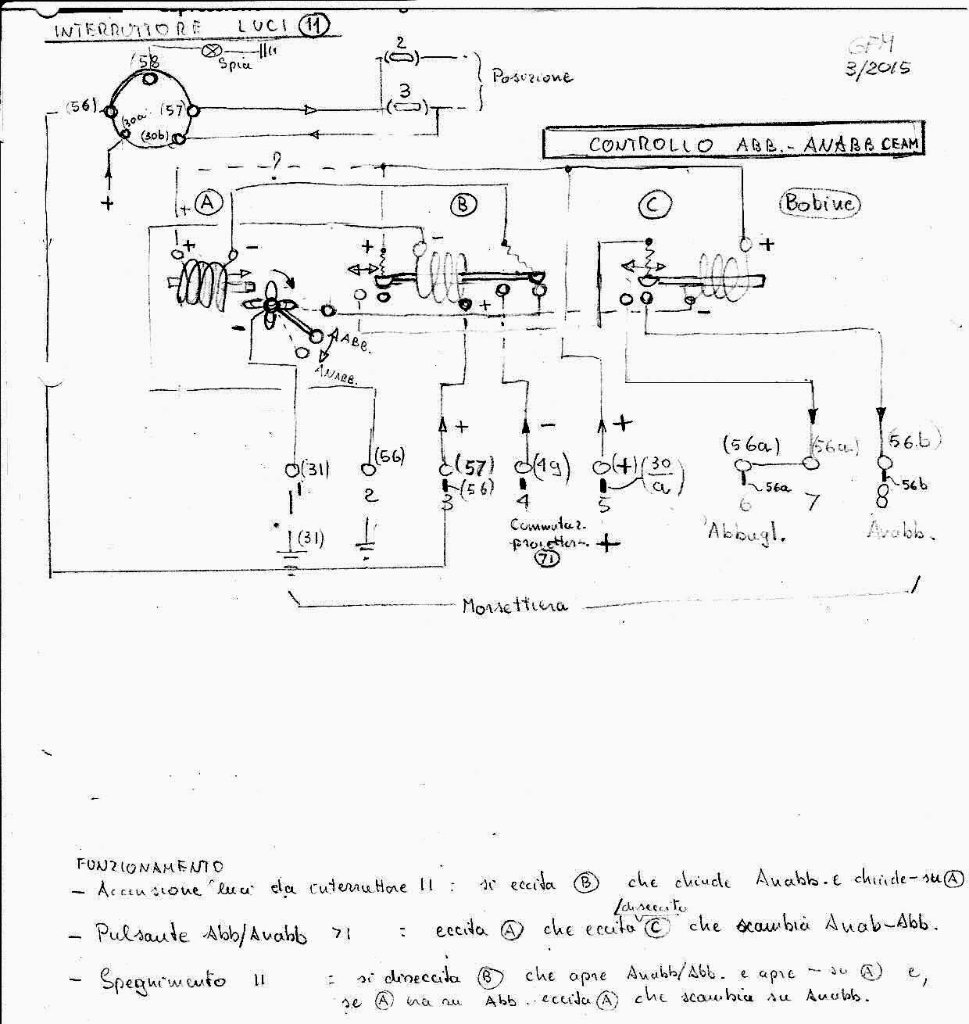 INTERRUTTORE LUCI (11)
GFM
3/2015
Spia
(58
2
3
Posizione
(56)
(30a)
(57)
(30b)
+
CONTROLLO ABB.-ANABB CEAM
?
A
B
C
Bobine
+
+ -
+ -
+
+
-
-
AABB.
ANABB.
+ - +
(31)
(56)
(57)
(56)
(49)
(+)
(30/a)
(56a)
(56a)
(56b)
56a
56b
1 2 3 4 5 6 7 8
(31)
Commutaz.
proiettor. +
71
Abbagl.
Anabb.
Morsettiera
FUNZIONAMENTO
- Accensione luci da interruttore 11 : si eccita (B) che chiude Anabb. e chiude - su (A)
/diseccita
- Pulsante Abb/Anabb 71 : eccita (A) che eccita (C) che scambia Anab-Abb.
- Spegnimento 11 : si diseccita (B) che apre Anabb/Abb. e apre - su (A) e,
se (A) era su Abb. eccita (A) che scambia su Anabb.